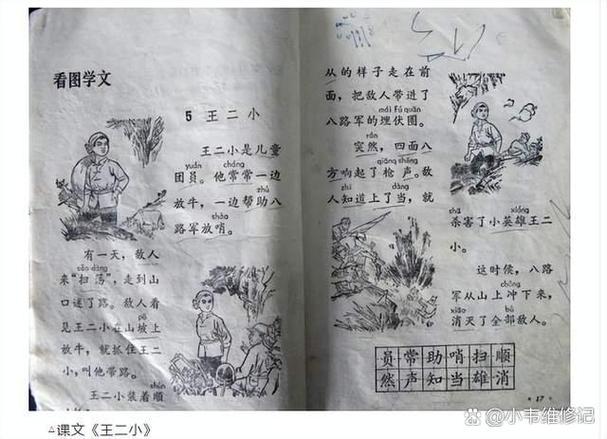 看图学文
5 王二小
王二小是儿童
yuán cháng
团员。他常常一边
zhù
放牛，一边帮助八
shào
路军放哨。
有一天，敌人
sǎo dàng
来“扫荡”，走到山
口迷了路。敌人看
pō
是王二小在山坡上
放牛，就抓住王二
小，叫他带路。
shùn
王二小装着顺
从的样子走在前
面，把敌人带进了
mái fú quān
八路军的埋伏圈。
rán
突然，四面八
qiāng shēng
方响起了枪声。敌
zhī dàng
人知道上了当，就
shā xióng
杀害了小英雄王二
小。
这时候，八路
chōng
军从山上冲下来，
xiāo bù
消灭了全部敌人。
员常助哨扫顺
然声知当雄消
·17·
△课文《王二小》
小韦维修记